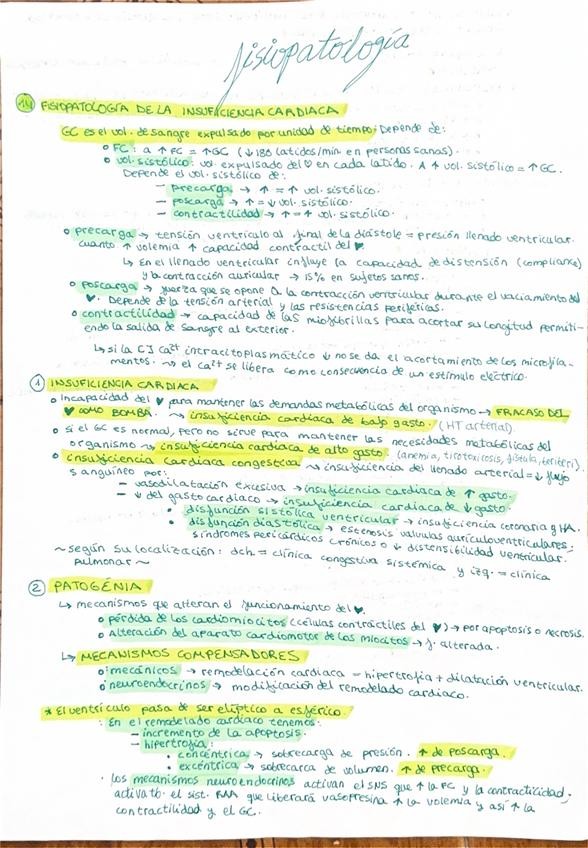 fisiopatología
14 FISIOPATOLOGÍA DE LA INSUFICIENCIA CARDIACA
GC es el vol. de sangre expulsado por unidad de tiempo. Depende de:
○ FC: a ↑ FC = ↑GC (↓180 latidos/min. en personas sanas).
○ vol. sistólico: vol. expulsado del ♥ en cada latido. A ↑ vol. sistólico = ↑GC.
Depende el vol. sistólico de:
- precarga → ↑ = ↑ vol. sistólico.
- poscarga → ↑ = ↓ vol. sistólico.
- contractilidad → ↑ = ↑ vol. sistólico.
○ precarga → tensión ventrículo al final de la diástole = presión llenado ventricular.
cuanto ↑ volemia ↑ capacidad contráctil del ♥.
↳ En el llenado ventricular influye la capacidad de distensión (compliance)
y la contracción auricular → 15% en sujetos sanos.
○ poscarga → fuerza que se opone a la contracción ventricular durante el vaciamiento del
♥. Depende de la tensión arterial y las resistencias periféricas.
○ contractilidad → capacidad de las miofibrillas para acortar su longitud permiti-
endo la salida de sangre al exterior.
↳ si la [] Ca²⁺ intracitoplasmático ↓ no se da el acortamiento de los microfila-
mentos. → el Ca²⁺ se libera como consecuencia de un estímulo eléctrico.
1 INSUFICIENCIA CARDIACA
○ Incapacidad del ♥ para mantener las demandas metabólicas del organismo → FRACASO DEL
♥ COMO BOMBA. → insuficiencia cardiaca de bajo gasto. (HT arterial).
○ si el GC es normal, pero no sirve para mantener las necesidades metabólicas del
organismo → insuficiencia cardiaca de alto gasto. (anemia, tirotoxicosis, fístula, beriberi).
○ insuficiencia cardiaca congestiva → insuficiencia del llenado arterial = ↓ flujo
sanguíneo por:
- vasodilatación excesiva → insuficiencia cardiaca de ↑ gasto.
- ↓ del gasto cardiaco → insuficiencia cardiaca de ↓ gasto.
• disfunción sistólica ventricular → insuficiencia coronaria y HA.
• disfunción diastólica → estenosis valvulas aurículoventriculares,
síndromes pericárdicos crónicos o ↓ distensibilidad ventricular.
~ según su localización: dch = clínica congestiva sistémica y izq. = clínica
pulmonar ~
2 PATOGÉNIA
↳ mecanismos que alteran el funcionamiento del ♥.
○ pérdida de los cardiomiocitos (células contráctiles del ♥) → por apoptosis o necrosis.
○ Alteración del aparato cardiomotor de los miocitos → f. alterada.
↳ MECANISMOS COMPENSADORES
○ mecánicos → remodelación cardiaca = hipertrofia + dilatación ventricular.
○ neuroendocrinos → modificación del remodelado cardiaco.
* El ventrículo pasa de ser elíptico a esférico.
· En el remodelado cardiaco tenemos:
- incremento de la apoptosis.
- hipertrofia:
• concéntrica → sobrecarga de presión. ↑ de poscarga.
• excéntrica → sobrecarca de volumen. ↑ de precarga.
· los mecanismos neuroendocrinos activan el SNS que ↑ la FC y la contracticidad,
activato. el sist. RAA que liberará vasopresina ↑ la volemia y así ↑ la
contractilidad y el GC.